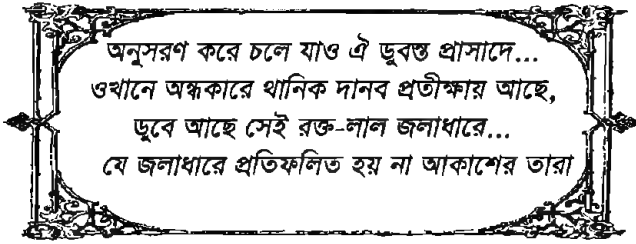 অনুসরণ করে চলে যাও ঐ ডুবন্ত প্রাসাদে...
ওখানে অন্ধকারে থানিক দানব প্রতীক্ষায় আছে,
ডুবে আছে সেই রক্ত-লাল জলাধারে...
যে জলাধারে প্রতিফলিত হয় না আকাশের তারা